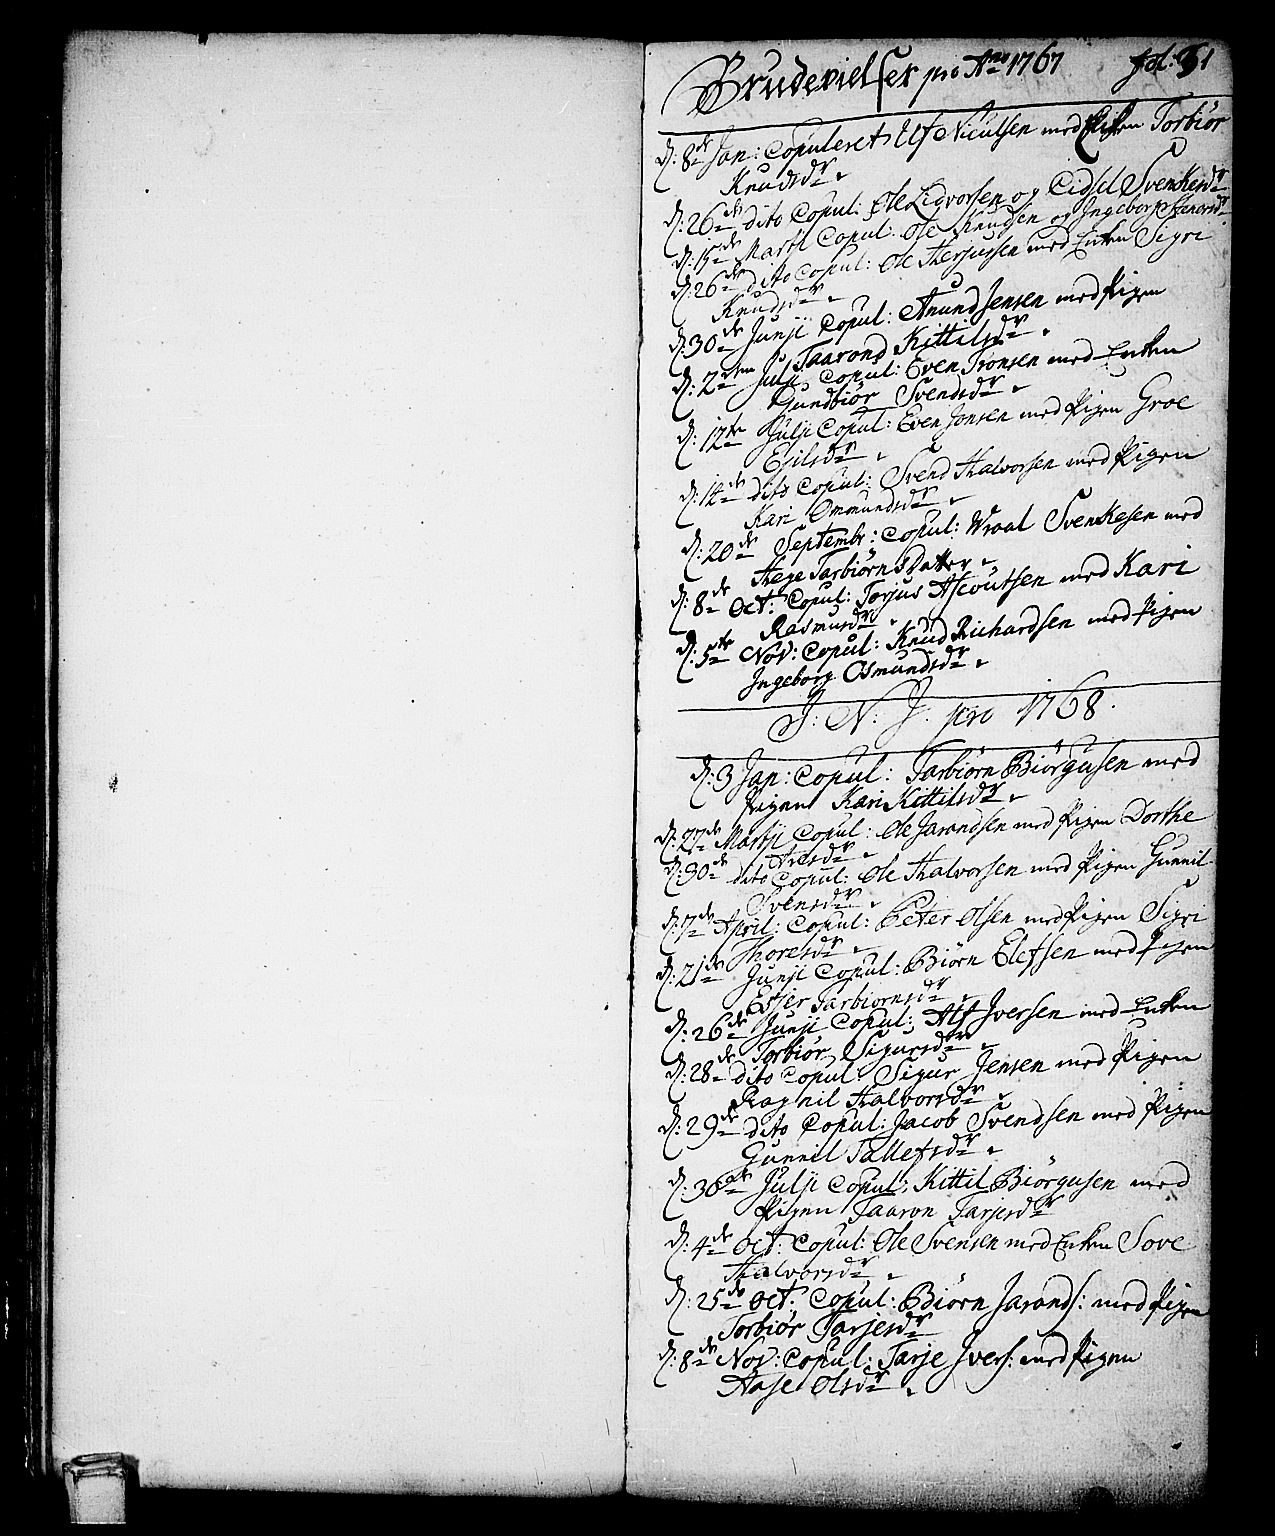 Brudevielser pro Ao 1767 fol: 51
D: 8de Jan: Copuleret Ulf Nieulsen med Pigen Torbiør
Knudsdr
D: 26de dito Copul: Ole Lidvorsen og Cidsel Svenkesdr
D: 15de Martj Copul: Ole Knudsen og Ingeborg
D: 26de dito Copul: Ole Therjussen med Enken Sigri
Knudsdr
D: 30de Junji Copul: Anund Jensen med Pigen
Taarond Kittilsdr
D: 2den Julji Copul: Even Tronsen med Enken
Gundbiør Svendsdr
D: 12te Julji Copul: Even Jonsen med Pigen Groe
Egilsdr
D: 14de dito Copul: Svend Halvorsen med Pigen
Kari Ommundsdr
D: 20de Septembr: Copul: Wraal Svenkesen med
Hege Tarbiørns Datter
D: 8de Oct: Copul: Torjus Ascoutsen med Kari
Rasmusdr
D: 5te Nov: Copul: Knud Richardsen med Pigen
Ingeborg Osmundsdr
J: N: J. pro 1768.
D: 3 Jan: Copul: Tarbiørn Biørgusen med
Pigen Kari Kittilsdr
D: 27de Martji Copul: Ole Jarandsen med Pigen Dorthe
Aresdr
D: 30de dito Copul: Ole Halvorsen med Pigen Gunnil
Svensdr
D: 7de April: Copul: Peter Olsen med Pigen Sigri
Thoresdr
D: 21de Junji Copul: Biørn Elefsen med Pigen
Esjer Tarbiørnsdr
D: 26de Junji Copul: Alf Iversen med Enken
Torbiør Sigursdr
D: 28de dito Copul: Sigur Jensen med Pigen
Ragnil Halvorsdr
D: 29de dito Copul: Jacob Svendsen med Pigen
Gunnil Tallefsdr
D: 30de Julji Copul: Kittil Biørgusen med
Pigen Taaron Tarjesdr
D: 4de Oct: Copul: Ole Svensen med Enken Sove
Halvorsdr
D: 25de Oct: Copul: Biørn Jarands: med Pigen
Torbiør Tarjesdr
D: 8de Nov: Copul: Tarje Ivers: med Pigen
Aase Olsdr